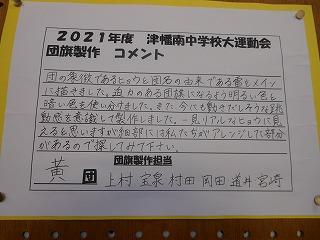 2021年度 津幡南中学校大運動会
団旗製作 コメント
団の象徴であるヒョウと団名の由来である雷をメイン
に描きました。迫力のある団旗になるよう明るい色と
暗い色を使い分けました。また、今にも動きだしそうな躍
動感を意識して製作しました。一見リアルなヒョウに見
えると思いますが細部には私たちがアレンジした部分
があるので探してみて下さい。
団旗製作担当
黄 団 上村 宝泉 村田 岡田 道井 宮崎